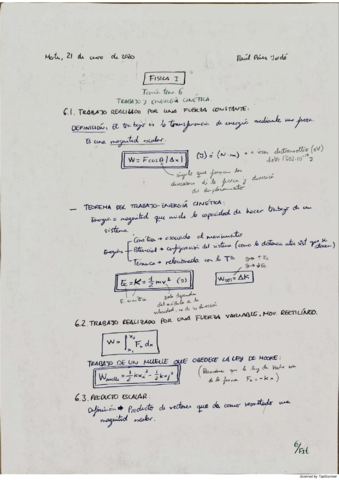 Motril, 21 de enero de 2020
Raúl Pérez
FÍSICA I
Teoría tema 6
TRABAJO Y ENERGÍA CINÉTICA
6.1. TRABAJO REALIZADO POR UNA FUERZA CONSTANTE.
DEFINICIÓN: El trabajo es la transferencia de energía mediante una fuerza
Es una magnitud escalar.
W = F cosθ |Δx| (J) ó (N·m)
electronvoltio (eV)
ángulo que forman las
direcciones de la fuerza y dirección
del desplazamiento
— TEOREMA DEL TRABAJO-ENERGÍA CINÉTICA:
Energía = magnitud que mide la capacidad de hacer trabajo de un
sistema
Energía
Cinética → asociada al movimiento
Potencial → configuración del sistema (como la distancia
Térmica → relacionada con la Tª
Ec = K = 1/2 mv² (J)
Wtot = ΔK
E. cinética
solo depende
del módulo de la
velocidad, no de su dirección
6.2. TRABAJO REALIZADO POR UNA FUERZA VARIABLE, MOV. RECTILÍNEO.
W = ∫ Fx dx
TRABAJO DE UN MUELLE QUE OBEDECE LA LEY DE HOOKE:
Wmuelle = 1/2 kxi² - 1/2 kxf²
(Recuerda que la ley de Hooke
de la forma Fx = -kx)
6.3. PRODUCTO ESCALAR.
Definición → Producto de vectores que da como resultado una
magnitud escalar.
6/
Scanned by TapScanner